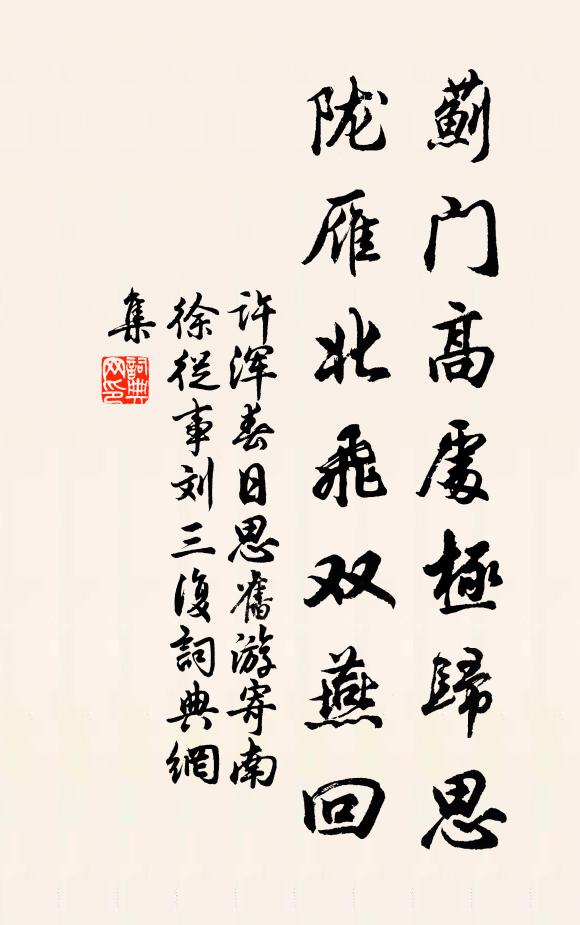 蓟门高处極歸思
陇雁北飛双燕回
许浑春日思舊游寄南
徐從事刘三復詞典網
集
詞典
网印